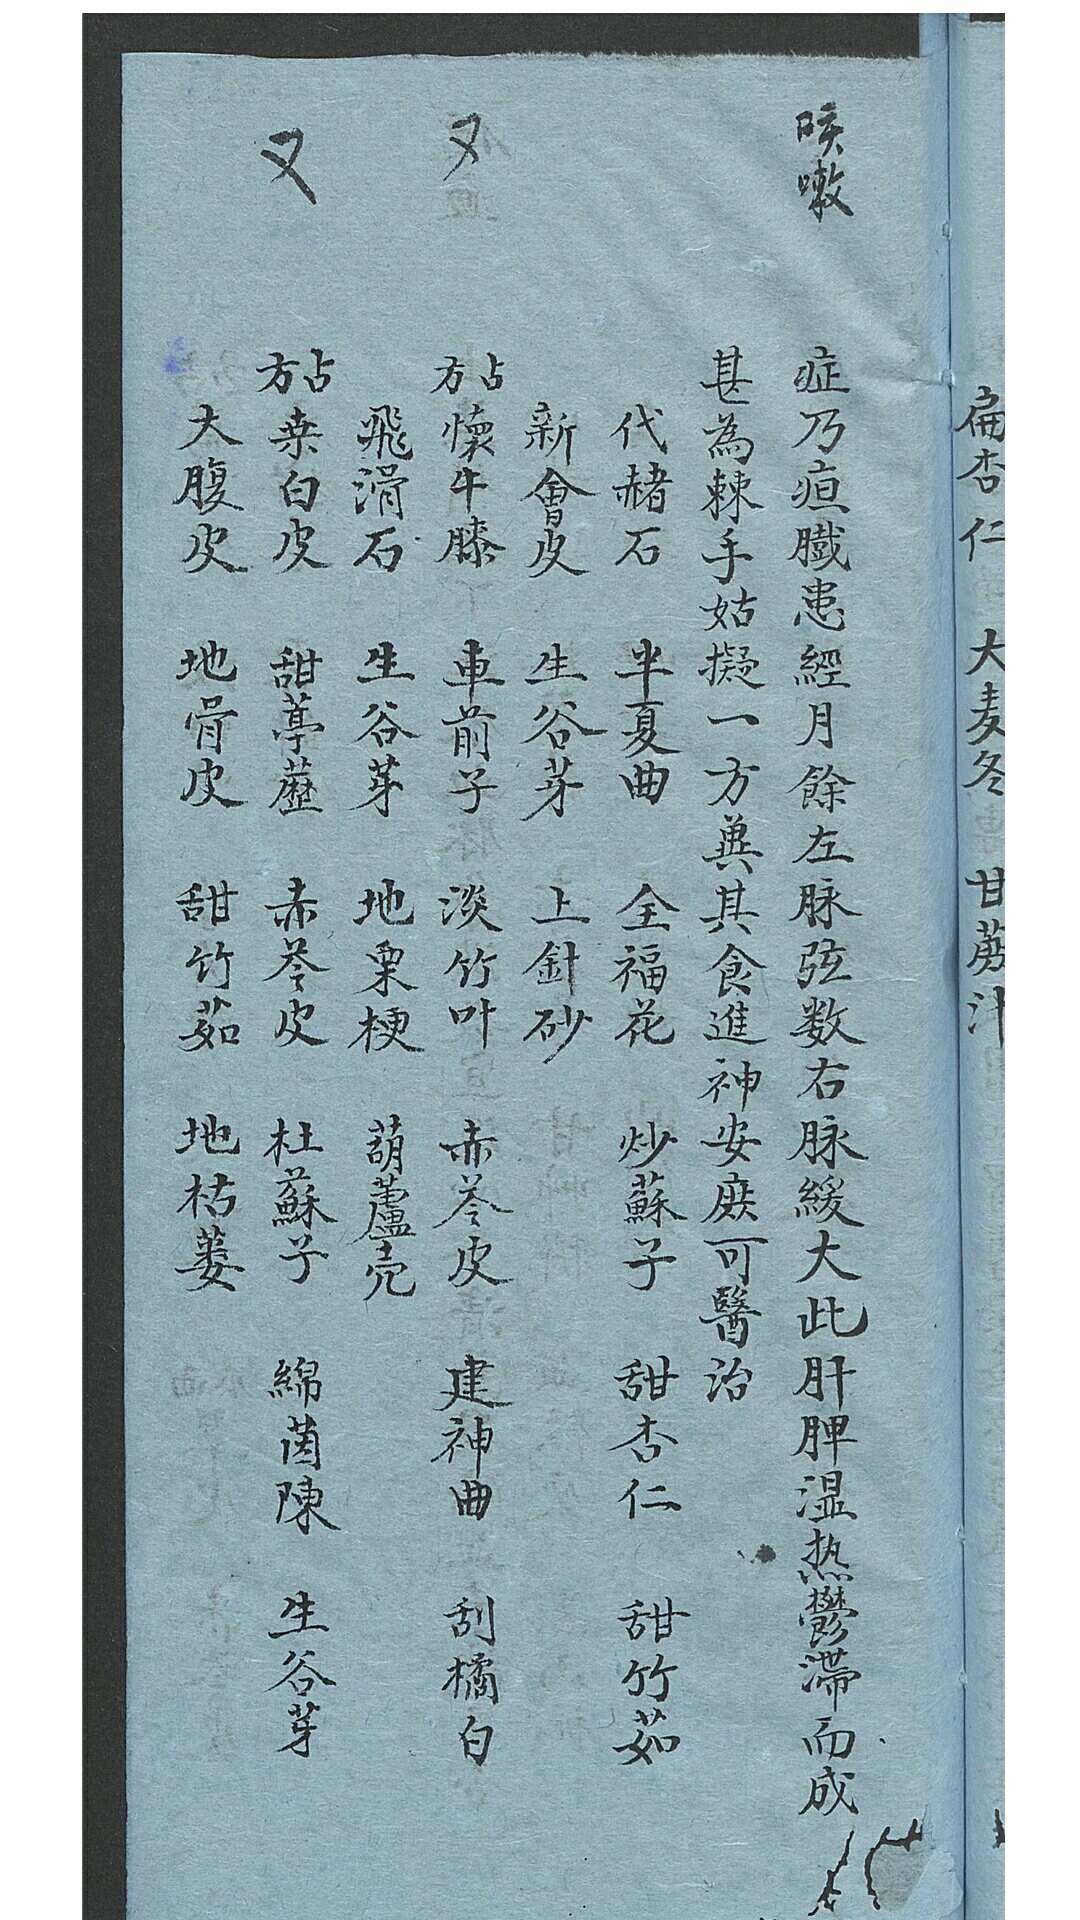 扁杏仁 大麦冬 甘蔗汁
咳嗽
症乃疸臌患經月餘左脉弦数右脉緩大此肝脾湿热鬱滞而成
甚為棘手姑擬一方兾其食進神安庶可醫治
代赭石 半夏曲 全福花 炒蘇子 甜杏仁 甜竹茹
新會皮 生谷芽 上針砂
又
占方 懷牛膝 車前子 淡竹叶 赤苓皮 建神曲 刮橘白
飛滑石 生谷芽 地栗梗 葫蘆壳
又
占方 桒白皮 甜葶藶 赤苓皮 杜蘇子 綿茵陳 生谷芽
大腹皮 地骨皮 甜竹茹 地枯蒌